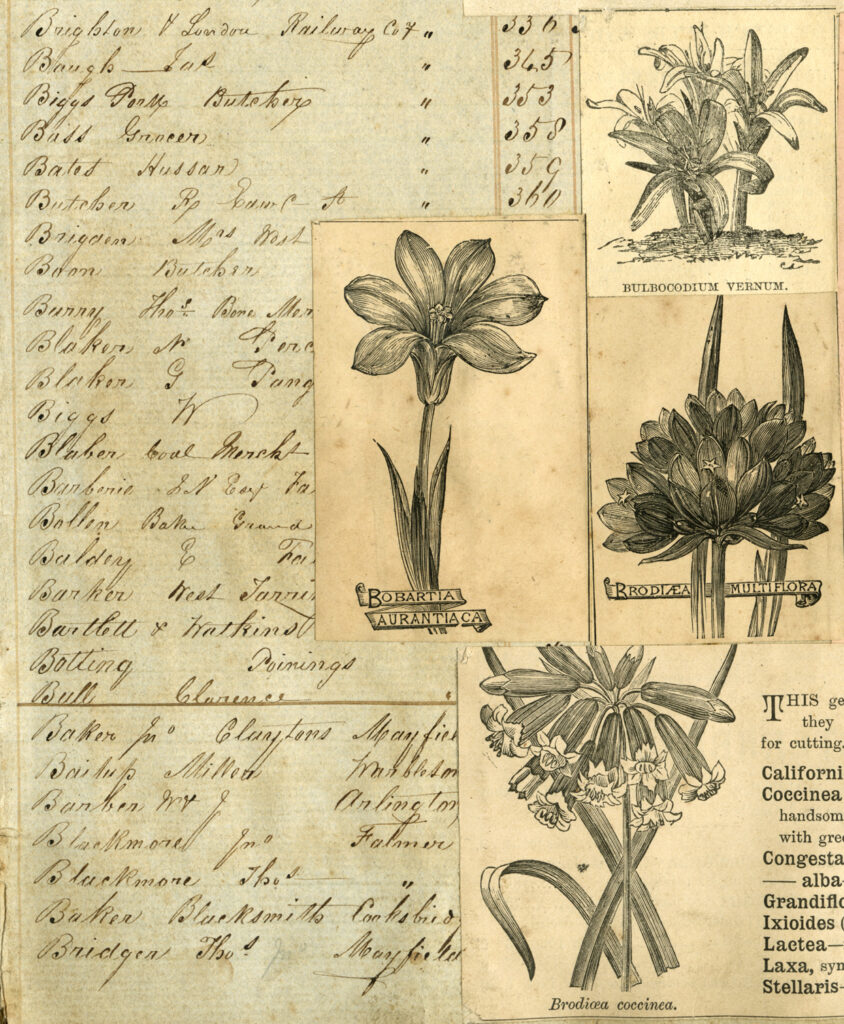 Brighton & London Railway Coy " 336
Baugh Jas " 345
Biggs Pork Butcher " 353
Bass Grocer " 358
Bates Hussar " 359
Butcher R Edwd St " 360
Brigden Mrs West
Boon Butcher
Burry Thos. Bone Mer
Blaker N
Blaker G
Biggs W
Blaber Coal Mercht
Barberie Esq Fa
Bollen Baker Grand
Baldey E Fa
Barker West Tarrin
Bartlett & Watkins
Botting Poinings
Bull Clarence "
Baker Jno Claytons Mayfiel
Miller Warbleton
Barber Wm J Arlington
Blackmore Jno Falmer
Blackmore Thos "
Baker Blacksmith
Bridger Thos Mayfield
BULBOCODIUM VERNUM.
BOBARTIA
AURANTIACA
BRODIÆA MULTIFLORA
Brodiœa coccinea.
THIS ge
they
for cutting.
Californi
Coccinea
handsom
with gree
Congesta
— alba-
Grandiflo
Ixioides (
Lactea—
Laxa, syn
Stellaris-